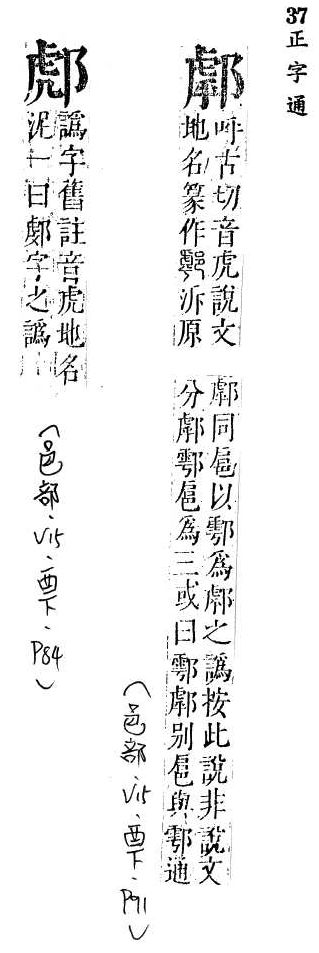 37正字通
呼古切音虎說文
地名篆作泝原
同扈以鄠為之譌按此說非說文
分鄠扈為三或曰鄠別扈與鄠通
(邑部、V15、酉下、P91)
譌字舊註音虎地名
泥一曰字之譌
(邑部、V15、酉下、P84)